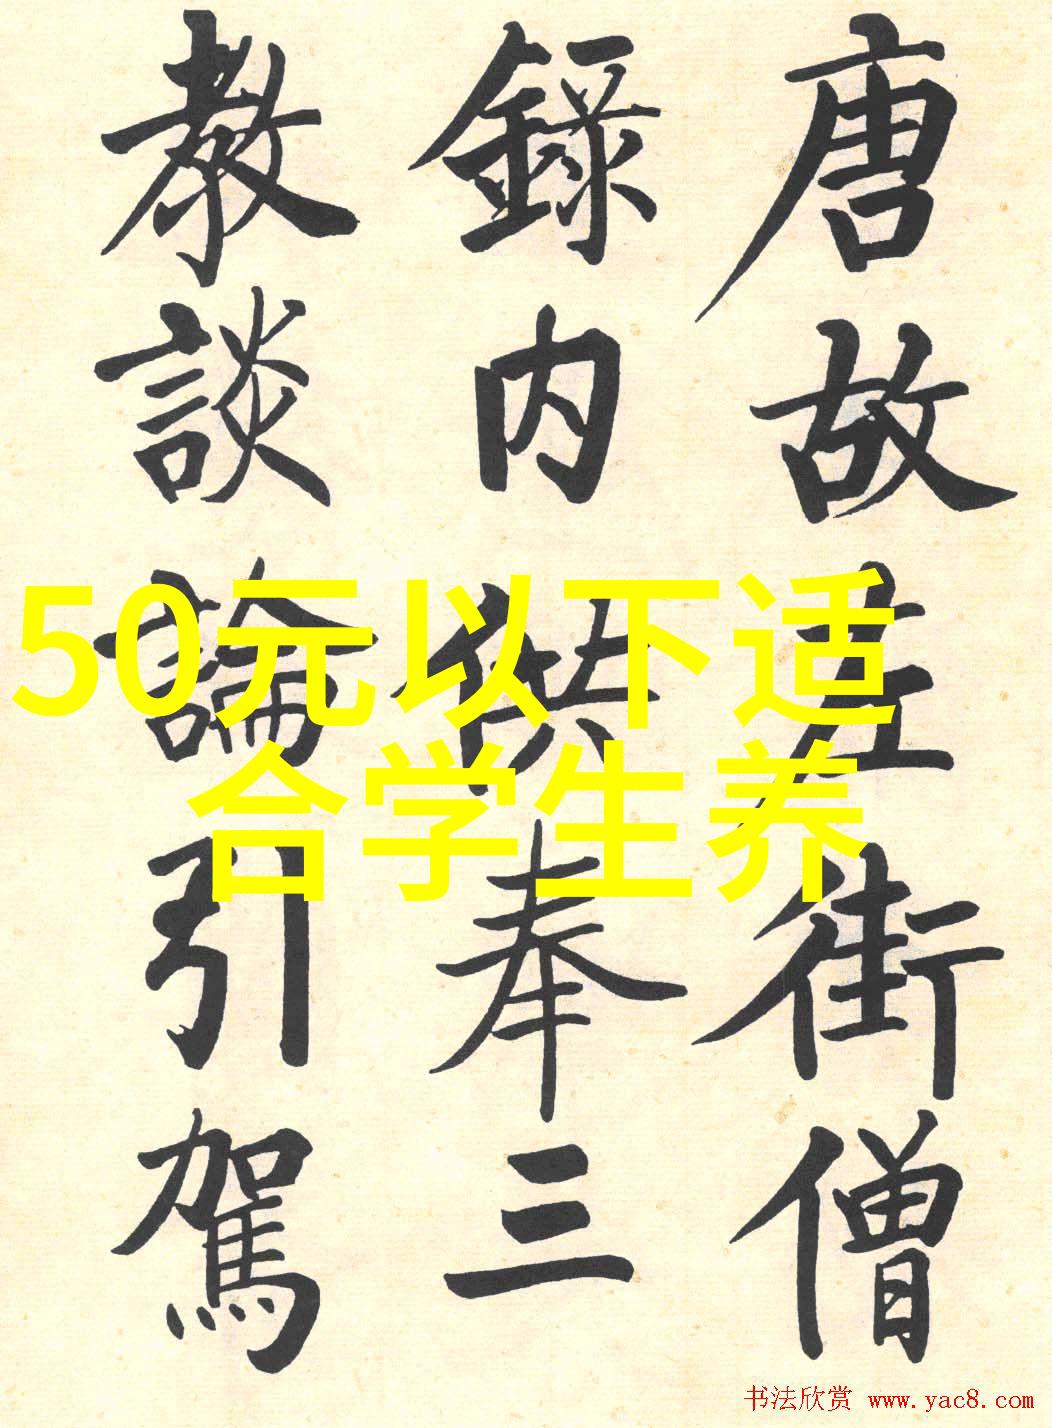 唐故左街僧
錄内供奉三
教談論引駕
50元以下适
合学生养
书法欣赏 www.yac8.com